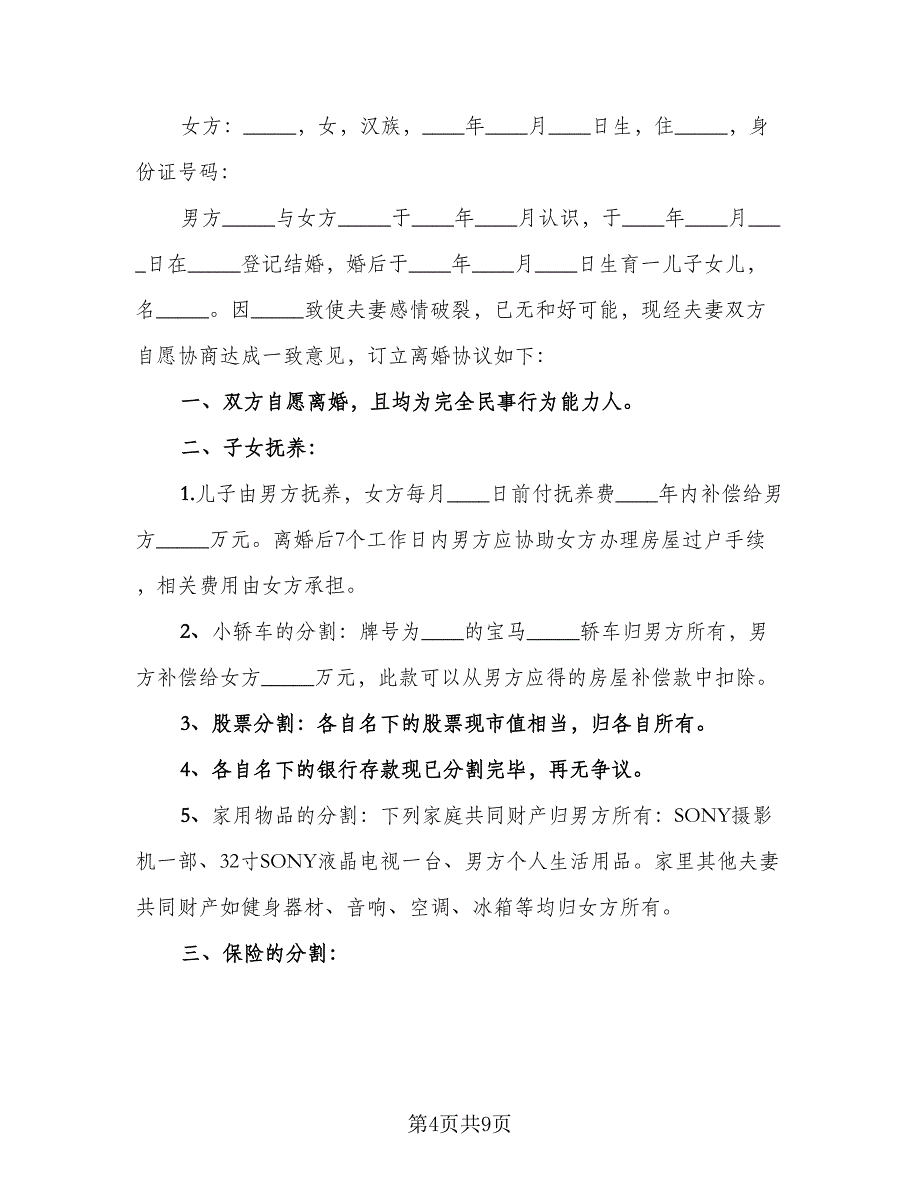 女方：_____，女，汉族，____年____月____日生，住_____，身
份证号码：
男方_____与女方_____于____年____月认识，于____年____月___
_日在_____登记结婚，婚后于____年____月____日生育一儿子女儿，
名_____。因_____致使夫妻感情破裂，已无和好可能，现经夫妻双方
自愿协商达成一致意见，订立离婚协议如下：
一、双方自愿离婚，且均为完全民事行为能力人。
二、子女抚养：
1.儿子由男方抚养，女方每月____日前付抚养费____年内补偿给男
方_____万元。离婚后7个工作日内男方应协助女方办理房屋过户手续
，相关费用由女方承担。
2、小轿车的分割：牌号为____的宝马_____轿车归男方所有，男
方补偿给女方_____万元，此款可以从男方应得的房屋补偿款中扣除。
3、股票分割：各自名下的股票现市值相当，归各自所有。
4、各自名下的银行存款现已分割完毕，再无争议。
5、家用物品的分割：下列家庭共同财产归男方所有：SONY摄影
机一部、32寸SONY液晶电视一台、男方个人生活用品。家里其他夫妻
共同财产如健身器材、音响、空调、冰箱等均归女方所有。
三、保险的分割：
第4页共9页